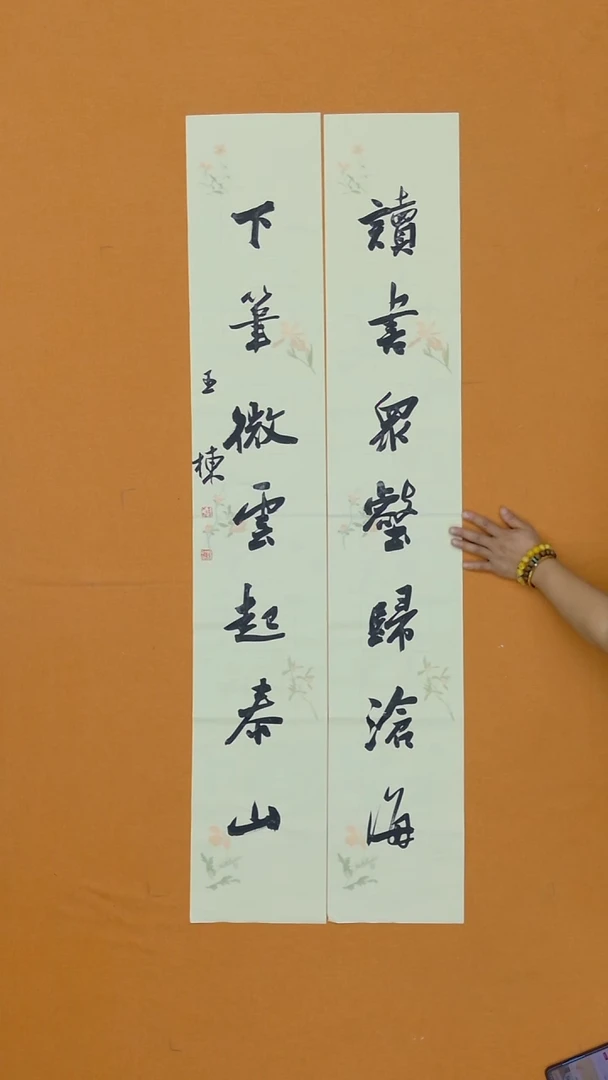 讀書眾壑歸滄海
下筆微雲起泰山
王棟